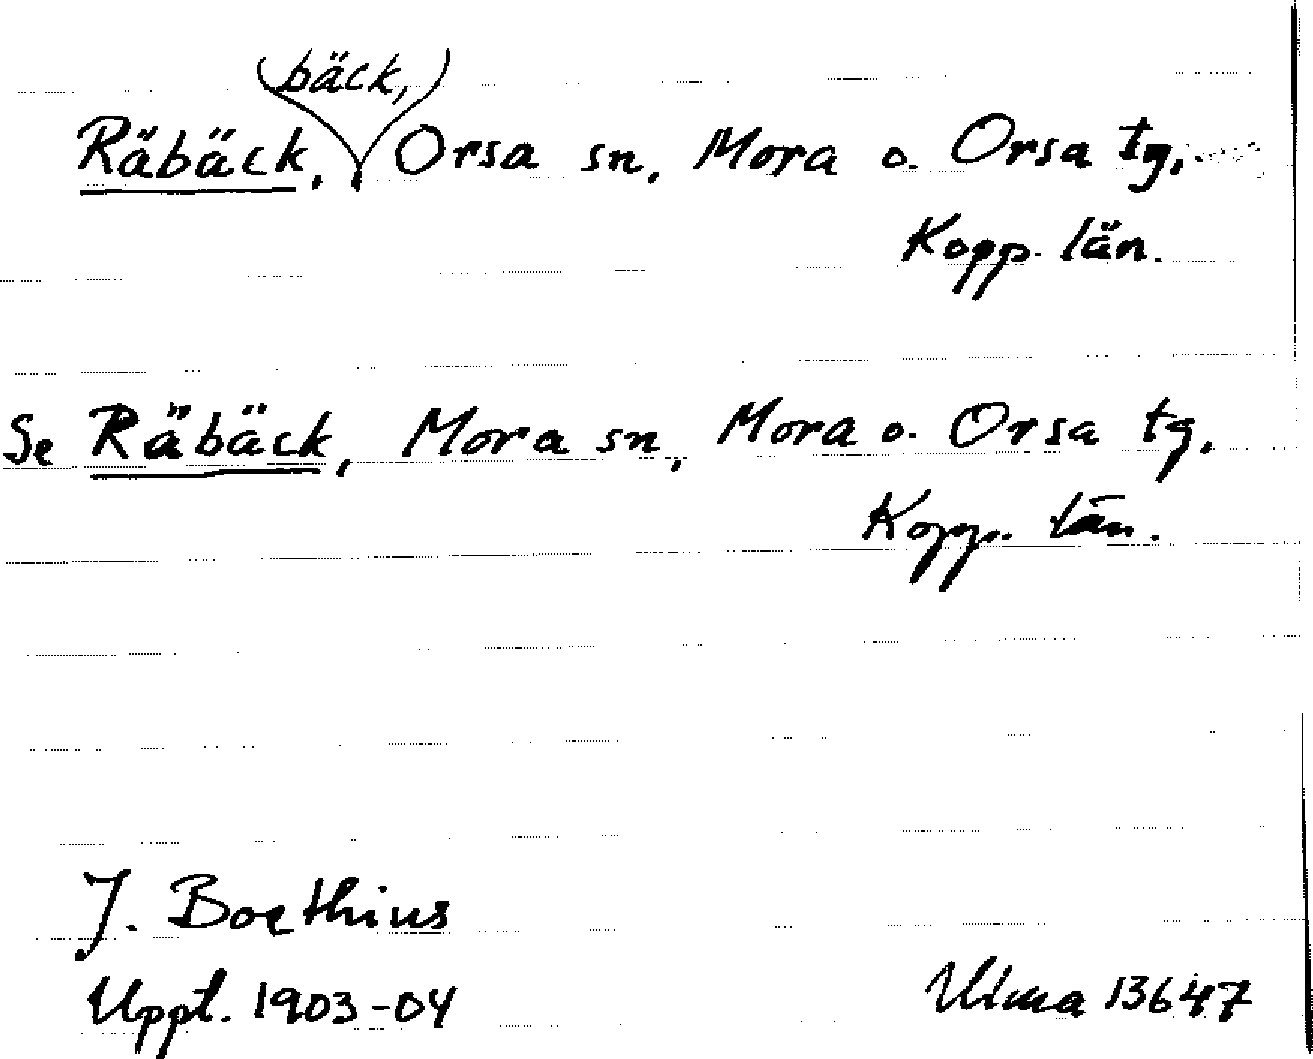 (bäck,)
Räbäck, Orsa sn, Mora o. Orsa tg,
Kopp. län.
Se Räbäck, Mora sn, Mora o. Orsa tg.
Kopp. län.
J. Boethius
Uppt. 1903-04
Ulma 13647